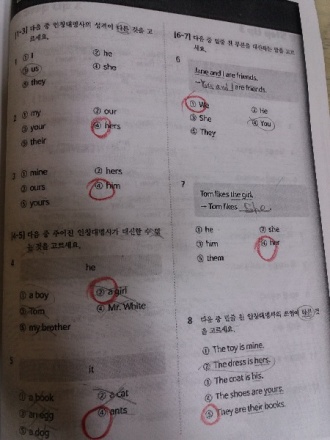 [1-3] 다음 중 인칭대명사의 성격이 다른 것을 고르세요.
1 ① I ② he
③ us ④ she
⑤ they
2 ① my ② our
③ your ④ hers
⑤ their
3 ① mine ② hers
③ ours ④ him
⑤ yours
[4-5] 다음 중 주어진 인칭대명사가 대신할 수 없는 것을 고르세요.
4
he
① a boy ② a girl
③ Tom ④ Mr. White
⑤ my brother
5
it
① a book ② a cat
③ an egg ④ ants
⑤ a dog
[6-7] 다음 중 밑줄 친 부분을 대신하는 말을 고르세요.
6
June and I are friends.
are friends.
① We ② He
③ She ④ You
⑤ They
7
Tom likes the girl.
→ Tom likes She.
① he ② she
③ him ④ her
⑤ them
8 다음 중 밑줄 친 인칭대명사의 쓰임이 다른 것을 고르세요.
① The toy is mine.
② The dress is hers.
③ The coat is his.
④ The shoes are yours.
⑤ They are their books.